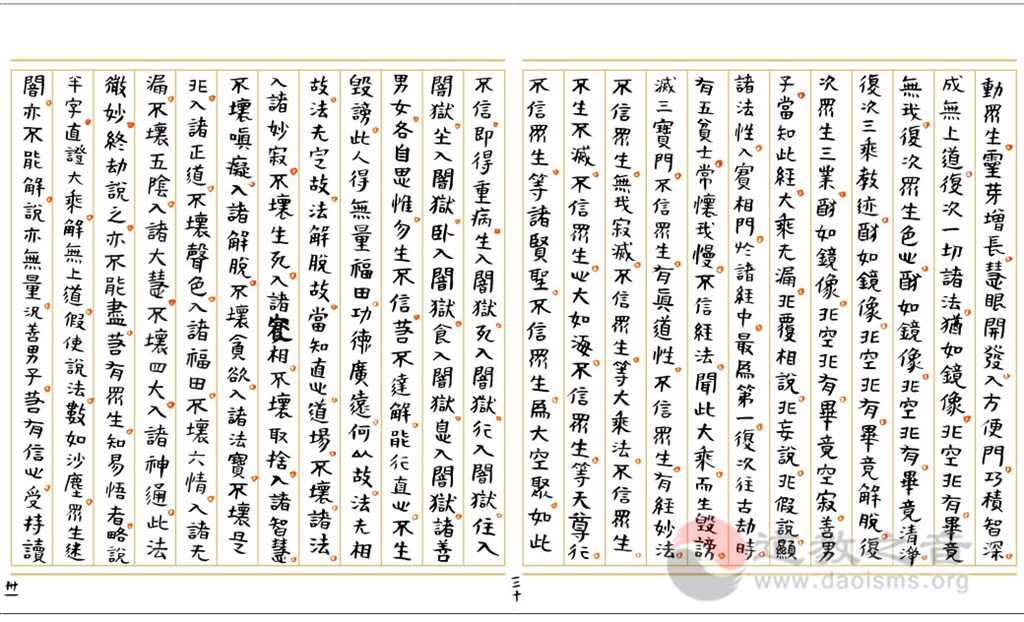 動眾生靈芽增長慧眼開發入方便門巧積智深
成無上道復次一切諸法猶如鏡像非空非有畢竟
無我復次眾生色心酧如鏡像非空非有畢竟清淨
復次三乘教迹酧如鏡像非空非有畢竟解脫復
次眾生三業酧如鏡像非空非有畢竟空寂善男
子當知此經大乘无漏非覆相說非妄說非假說顯
諸法性入實相門於諸經中最為第一復次往古劫時
有五貧士常懷我慢不信經法聞此大乘而生毀謗
滅三寶門不信眾生有真道性不信眾生有經妙法
不信眾生無我寂滅不信眾生等大乘法不信眾生
不生不滅不信眾生心大如海不信眾生等天尊行
不信眾生等諸賢聖不信眾生為大空聚如此
三十
不信即得重病生入闇獄死入闇獄行入闇獄住入
闇獄坐入闇獄臥入闇獄食入闇獄息入闇獄諸善
男女各自思惟勿生不信若不達解能行直心不生
毀謗此人得無量福田功德廣遠何以故法无相
故法无定故法解脫故當知直心道場不壞諸法
入諸妙寂不壞生死入諸實相不壞取捨入諸智慧
不壞嗔癡入諸解脫不壞貪欲入諸法寶不壞是
非入諸正道不壞聲色入諸福田不壞六情入諸无
漏不壞五陰入諸大慧不壞四大入諸神通此法
微妙終劫說之亦不能盡若有眾生知易悟者略說
半字直證大乘解無上道假使說法數如沙塵眾生迷
闇亦不能解說亦無量況善男子若有信心受持讀
卅一
道教之音
www.daoisms.org